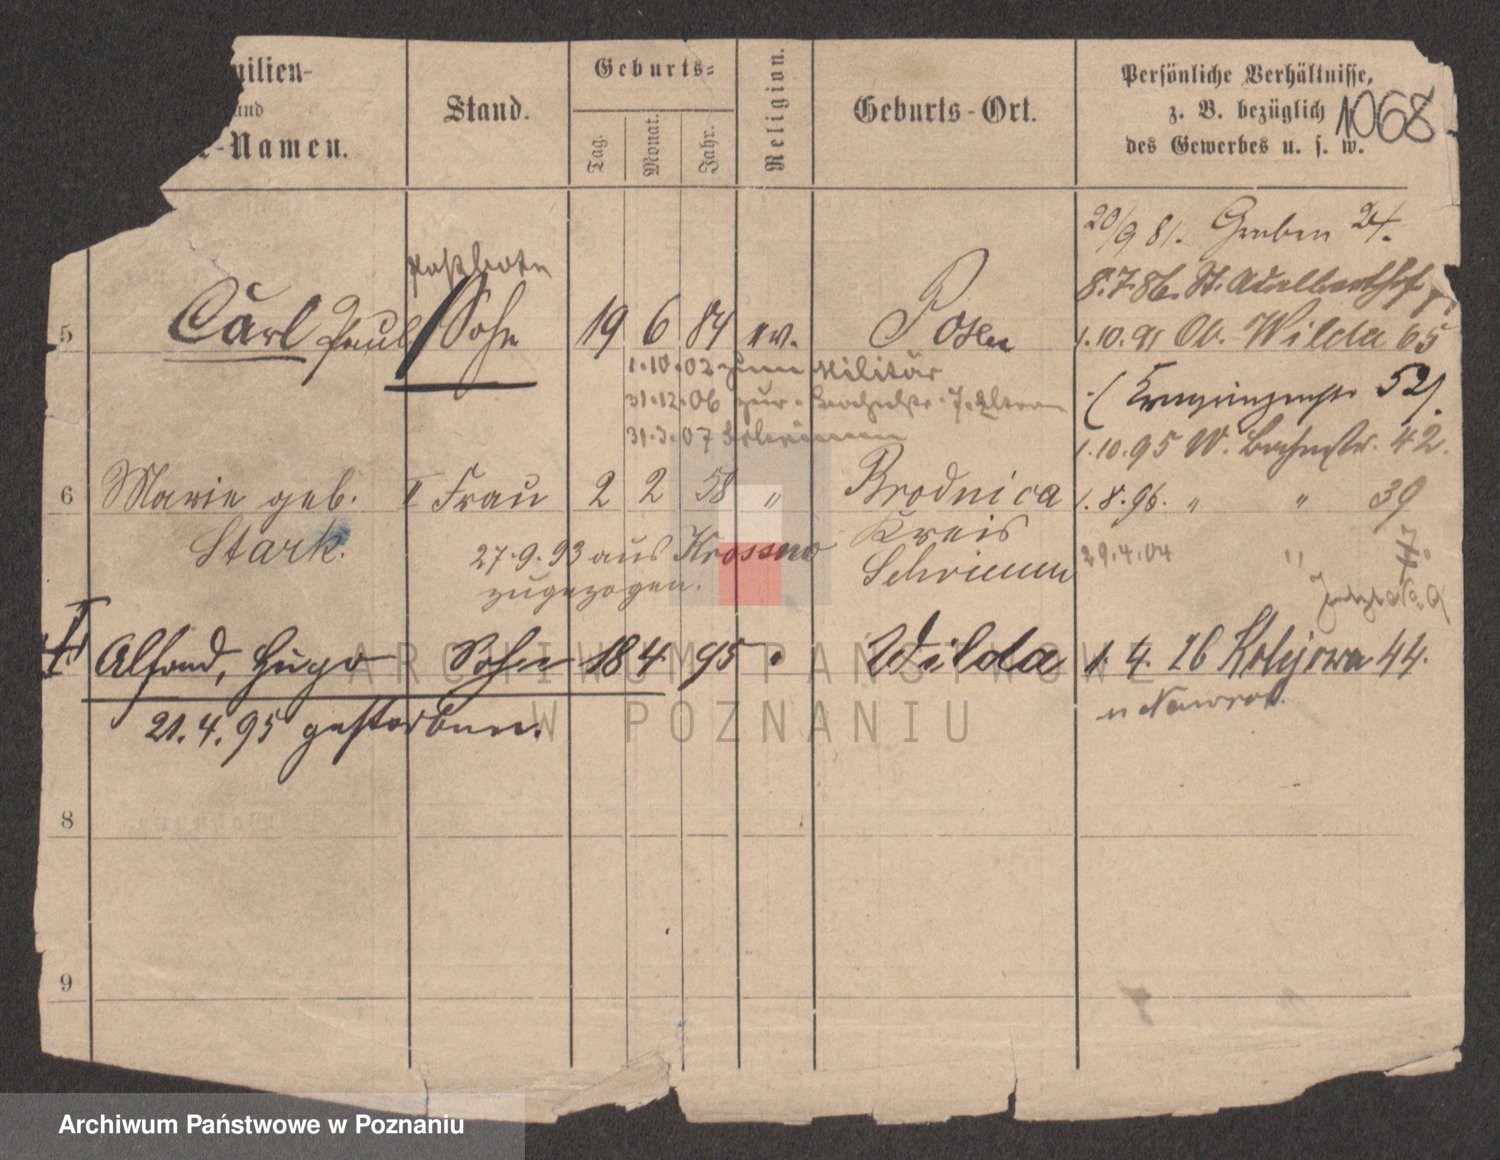 milien-
und
-Namen.
Stand.
Geburts-
Tag.
Monat.
Jahr.
Religion.
Geburts-Ort.
Persönliche Verhältnisse,
z. B. bezüglich
des Gewerbes u. s. w.
1068
20/9 81. Graben 24.
Postbote
8.7.86. St. Adalbertstr
5 Carl Paul Sohn 19 6 84 ev. Posen 1.10.91 Ob. Wilda 65
1.10.02 zum Militär
52
31.12.06 zur
31.3.07 Schrimm
1.10.95 W. Bachstr. 42.
6 Marie geb. Frau 2 2 58 " Brodnica 1.8.96. " " 39
Stark. Kreis
27.9.93 aus Krossno Schrimm 29.4.04 "
zugezogen.
Alfond, Hugo Sohn 18 4 95 " Wilda 1. 4. 26 Kolejowa 44.
u Nawrot.
21.4.95 gestorben.
8
9
ARCHIWUM PAŃSTWOWE
W POZNANIU
Archiwum Państwowe w Poznaniu